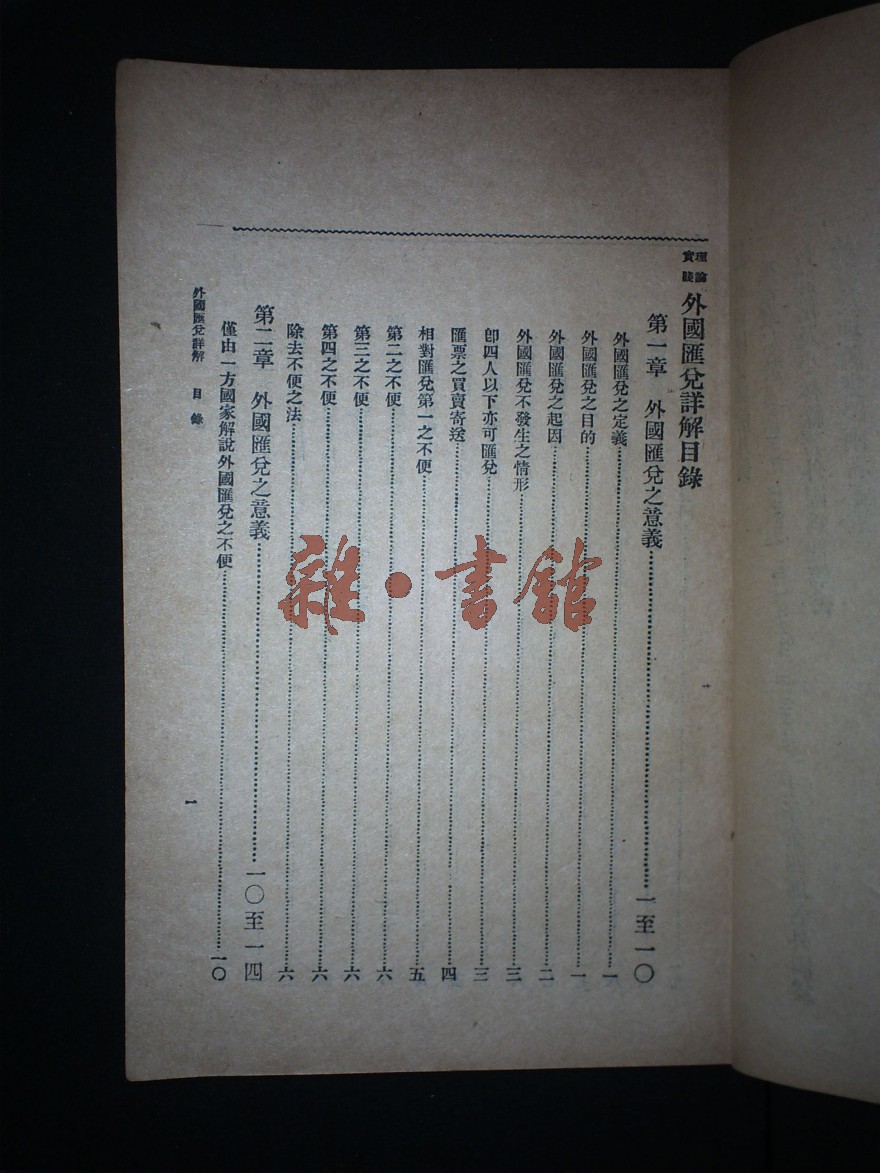 理論
實踐
外國匯兌詳解目錄
第一章　外國匯兌之意義…一至一〇
外國匯兌之定義…一
外國匯兌之目的…一
外國匯兌之起因…二
外國匯兌不發生之情形…三
卽四人以下亦可匯兌…三
匯票之買賣寄送…四
相對匯兌第一之不便…五
第二之不便…六
第三之不便…六
第四之不便…六
除去不便之法…六
第二章　外國匯兌之意義…一〇至一四
僅由一方國家解說外國匯兌之不便…一〇
外國匯兌詳解　目錄
一
雜·書館